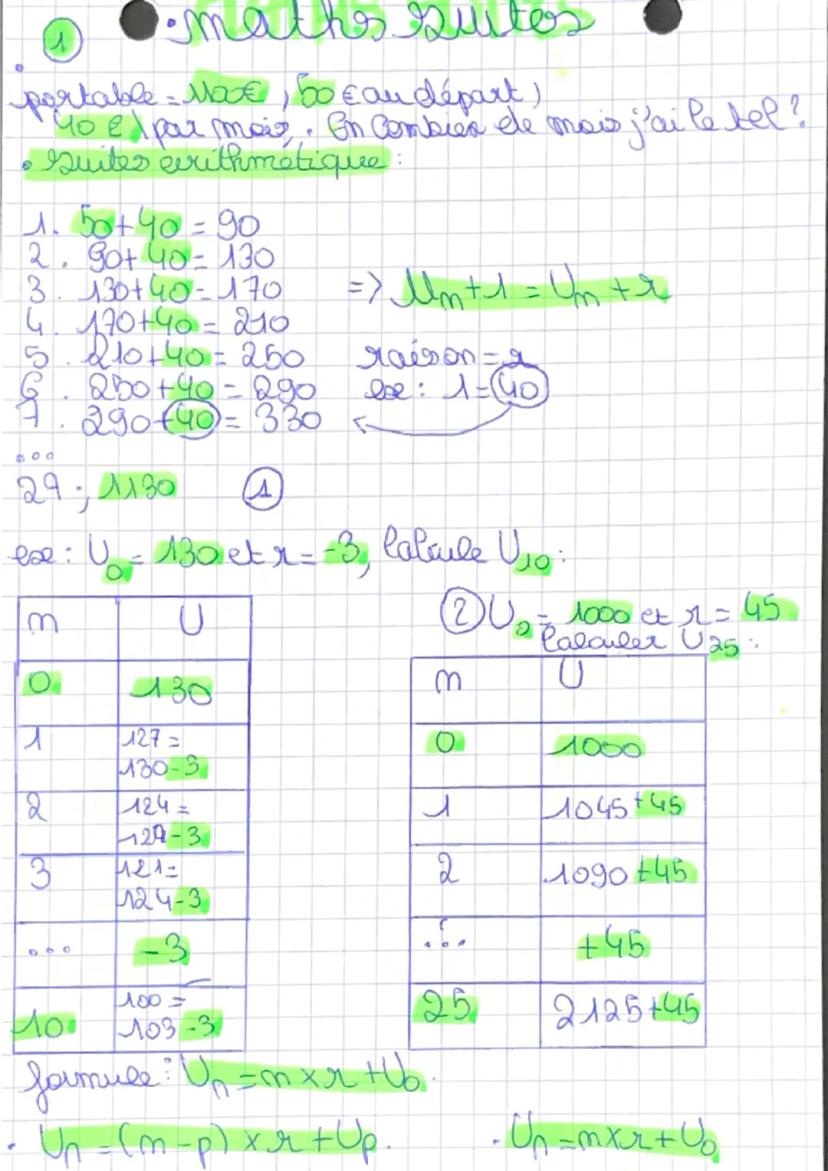 ① • maths suites
portable = 1100€, 50 € au départ,
40 € par mois. En Combien de mois j'ai le tel ?
• suites arithmétique :
1. 50 + 40 = 90
2. 90 + 40 = 130
3. 130 + 40 = 170 => Un+1 = Un + r
4. 170 + 40 = 210
5. 210 + 40 = 250 raison = r
6. 250 + 40 = 290 ex : 1 = 40
7. 290 + 40 = 330
...
27 ; 1130 ①
ex : U0 = 130 et r = -3, Calcule U10 :
② U0 = 1000 et r = 45
Calculer U25 :
n U
0 130
1 127 =
130 - 3
2 124 =
127 - 3
3 121 =
124 - 3
... -3
10 100 =
103 - 3
n U
0 1000
1 1045 + 45
2 1090 + 45
... + 45
25 2125 + 45
formule : Un = n x r + U0.
• Un = (n - p) x r + Up. • Un = n x r + U0